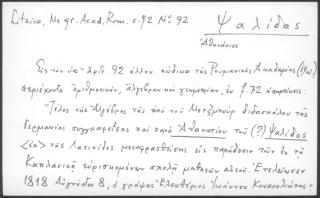 Litzica, Ms gr. Acad. Rom. σ. 92 Nο 92
Ψαλίδας
Ἀθανάσιος
Εἰς τὸν ὑπ' ἀριθ. 92 ἑλλην. κώδικα τῆς Ρουμανικῆς Ἀκαδημίας (19ου)
περιέχοντα ἀριθμητικήν, ἄλγεβραν καὶ γεωμετρίαν, ἐν f. 72 σημείωσις:
"Τέλος τῆς Ἀλγέβρας τῆς ὑπὸ τοῦ Μετζμπούρ διδασκάλου τῆς
Γερμανίας συγγραφείσης καὶ παρὰ Ἀθανασίου τοῦ (?) Ψαλίδος
<ἐκ> τῆς Λατινίδος μεταφρασθείσης εἰς παράδοσιν τῶν ἐν τῇ
Καπλανικῇ εὑρισκομένων σχολῇ μαθητῶν αὐτοῦ. Ἐτελείωσεν
1818 Αὐγούστου 8, ὁ γράψας Ἐλευθέριος Ἰωάννου Κουκουλιώτης"